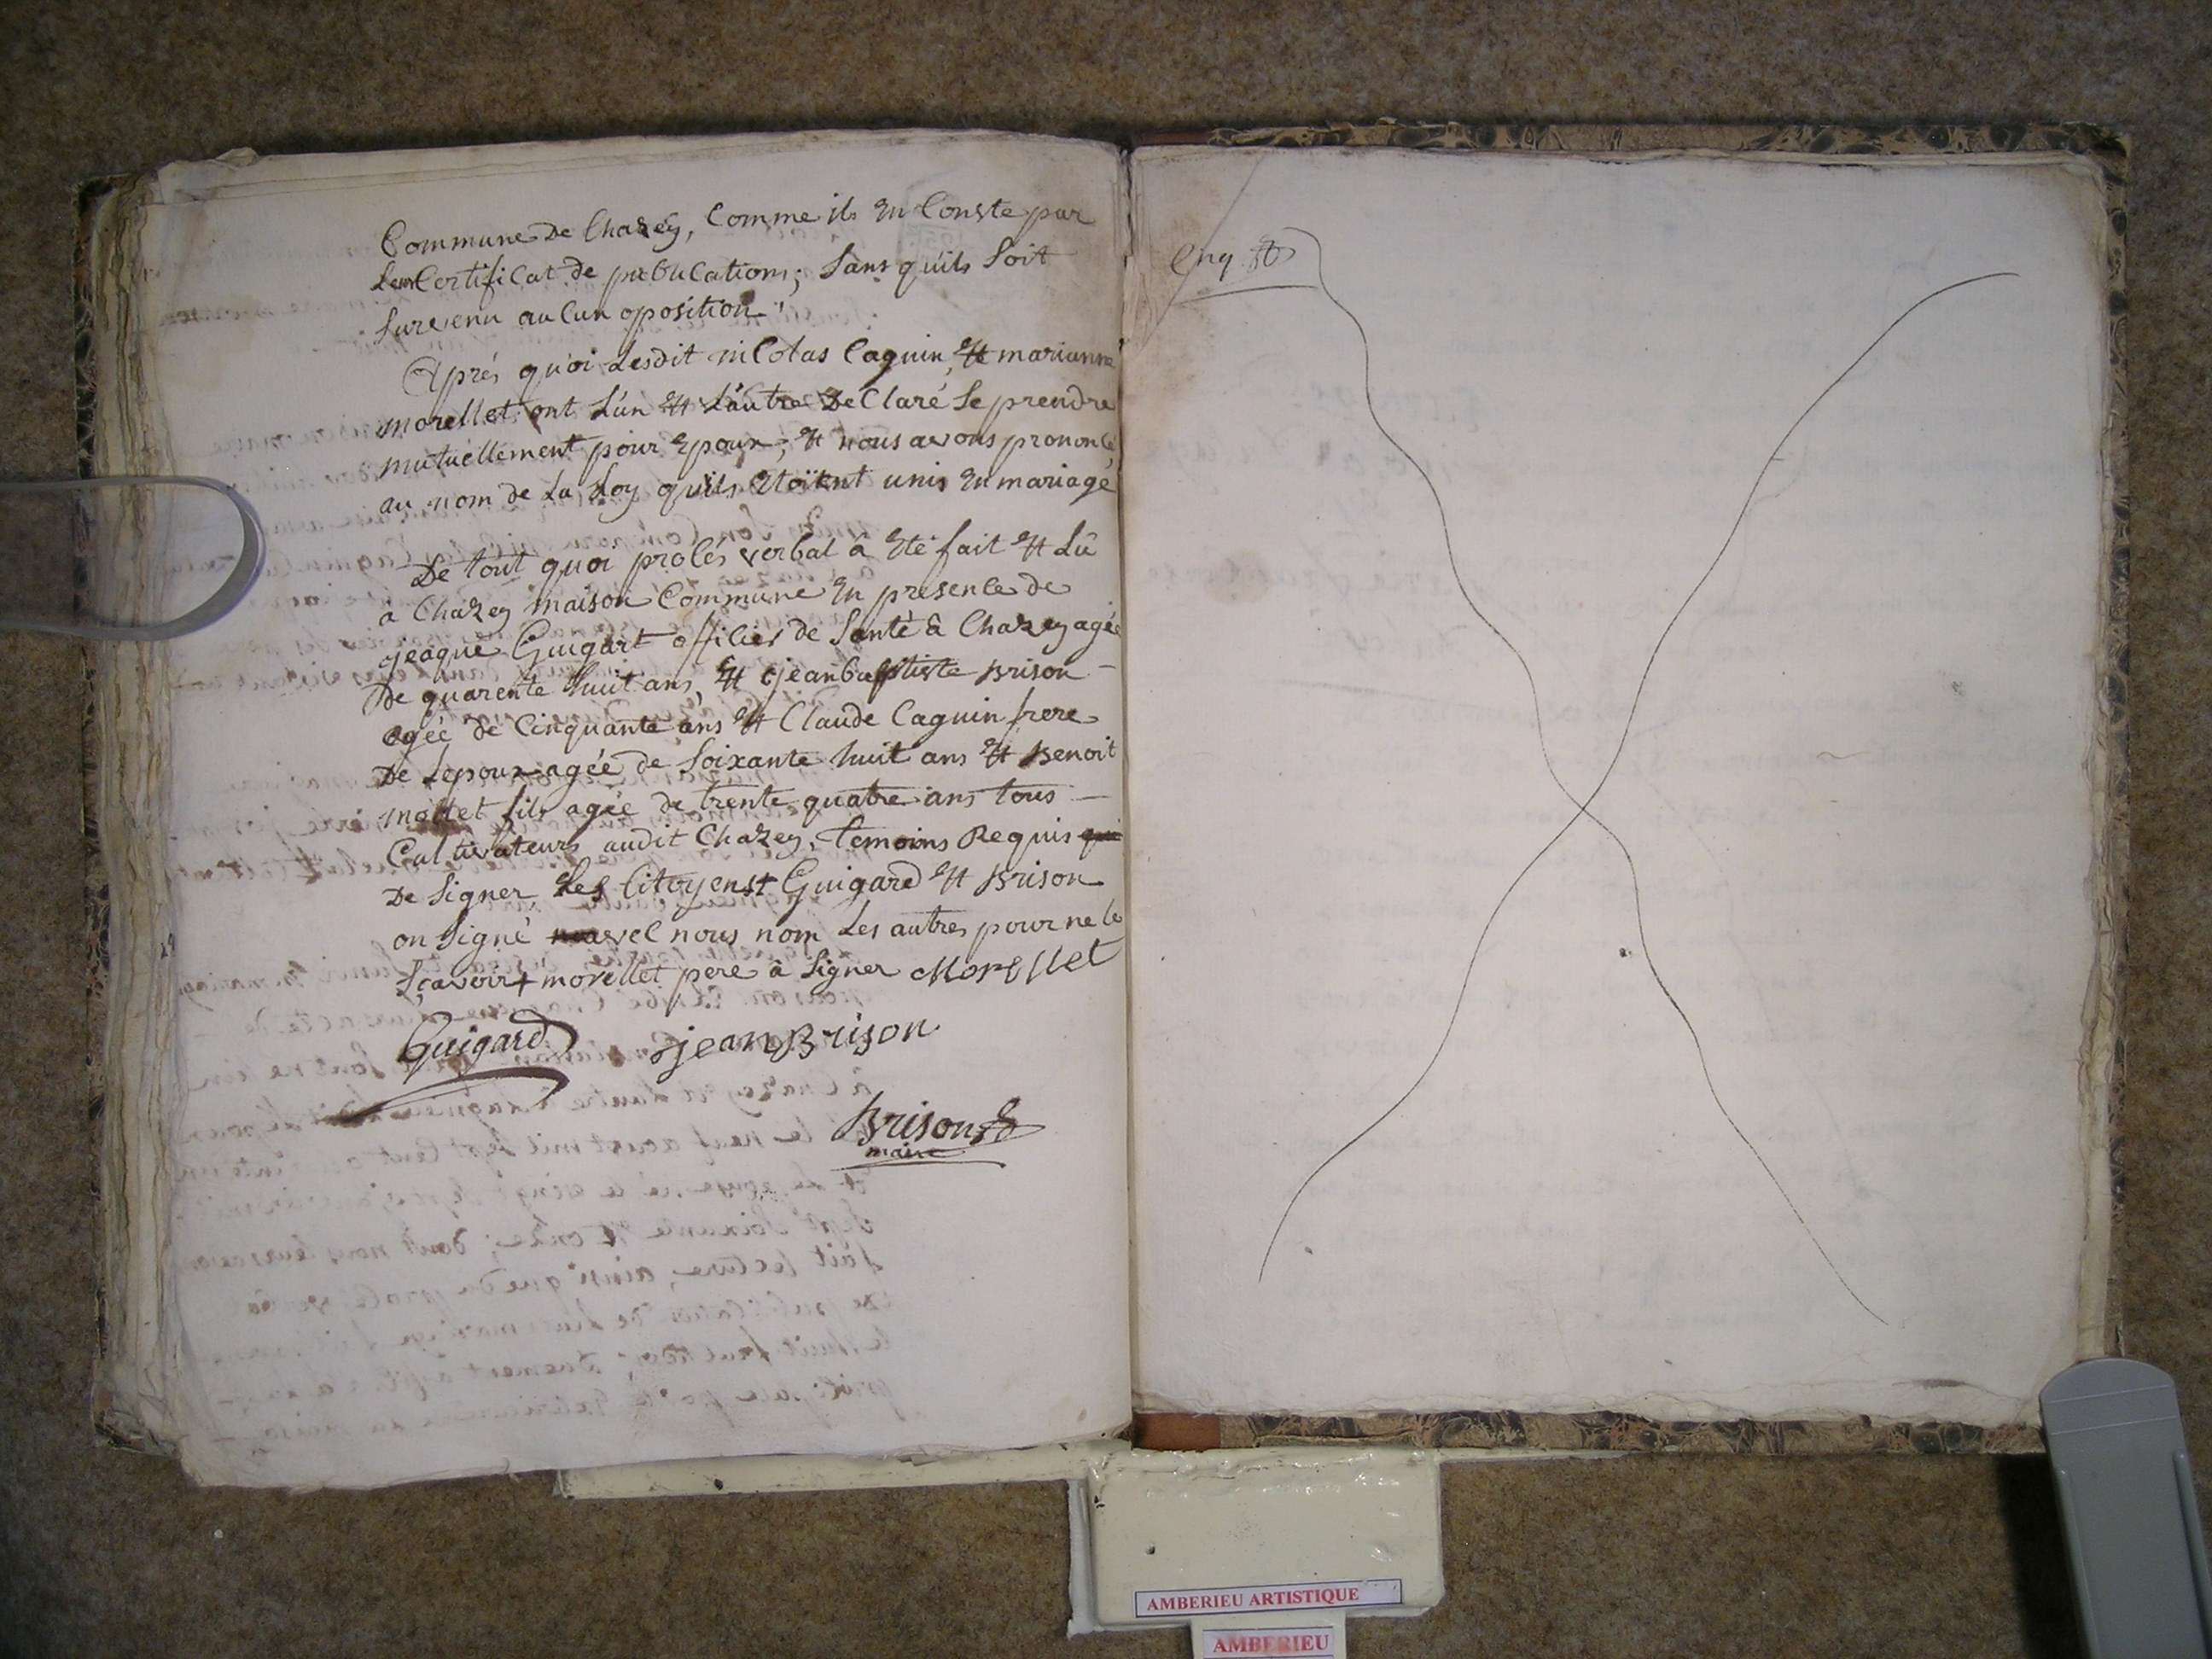 Commune De Chazey, Comme ils en Conste par
Leur Certificat de publications; Sans quils Soit
Survenu aucun oposition
Après quoi Lesdit nicolas Caguin, et marianne
morellet ont L'un et L'autre DeClaré Se prendre
mutuellement pour Epoux, et nous avons prononcé
au nom de La Loy quils Etoient unis En mariage
De tout quoi procés verbal à Eté fait et Lû
a Chazey maison Commune En presence de
jeaque Guigart officier de Santé à Chazey agée
De quarente huit ans, et jean baptiste Brison
agée de Cinquante ans et Claude Caguin frere
De Lepoux agée de Soixante huit ans et Benoit
mollet fils agée de trente quatre ans tous
Cultivateurs audit Chazey, temoins Requis qui
De Signer Les Citoyens + Guigard et Brison
on Signé avec nous nom Les autres pour ne le
Sçavoir + morellet pere à Signer Morellet
Guigard jean Brison
Brison
maire
AMBERIEU ARTISTIQUE
AMBERIEU